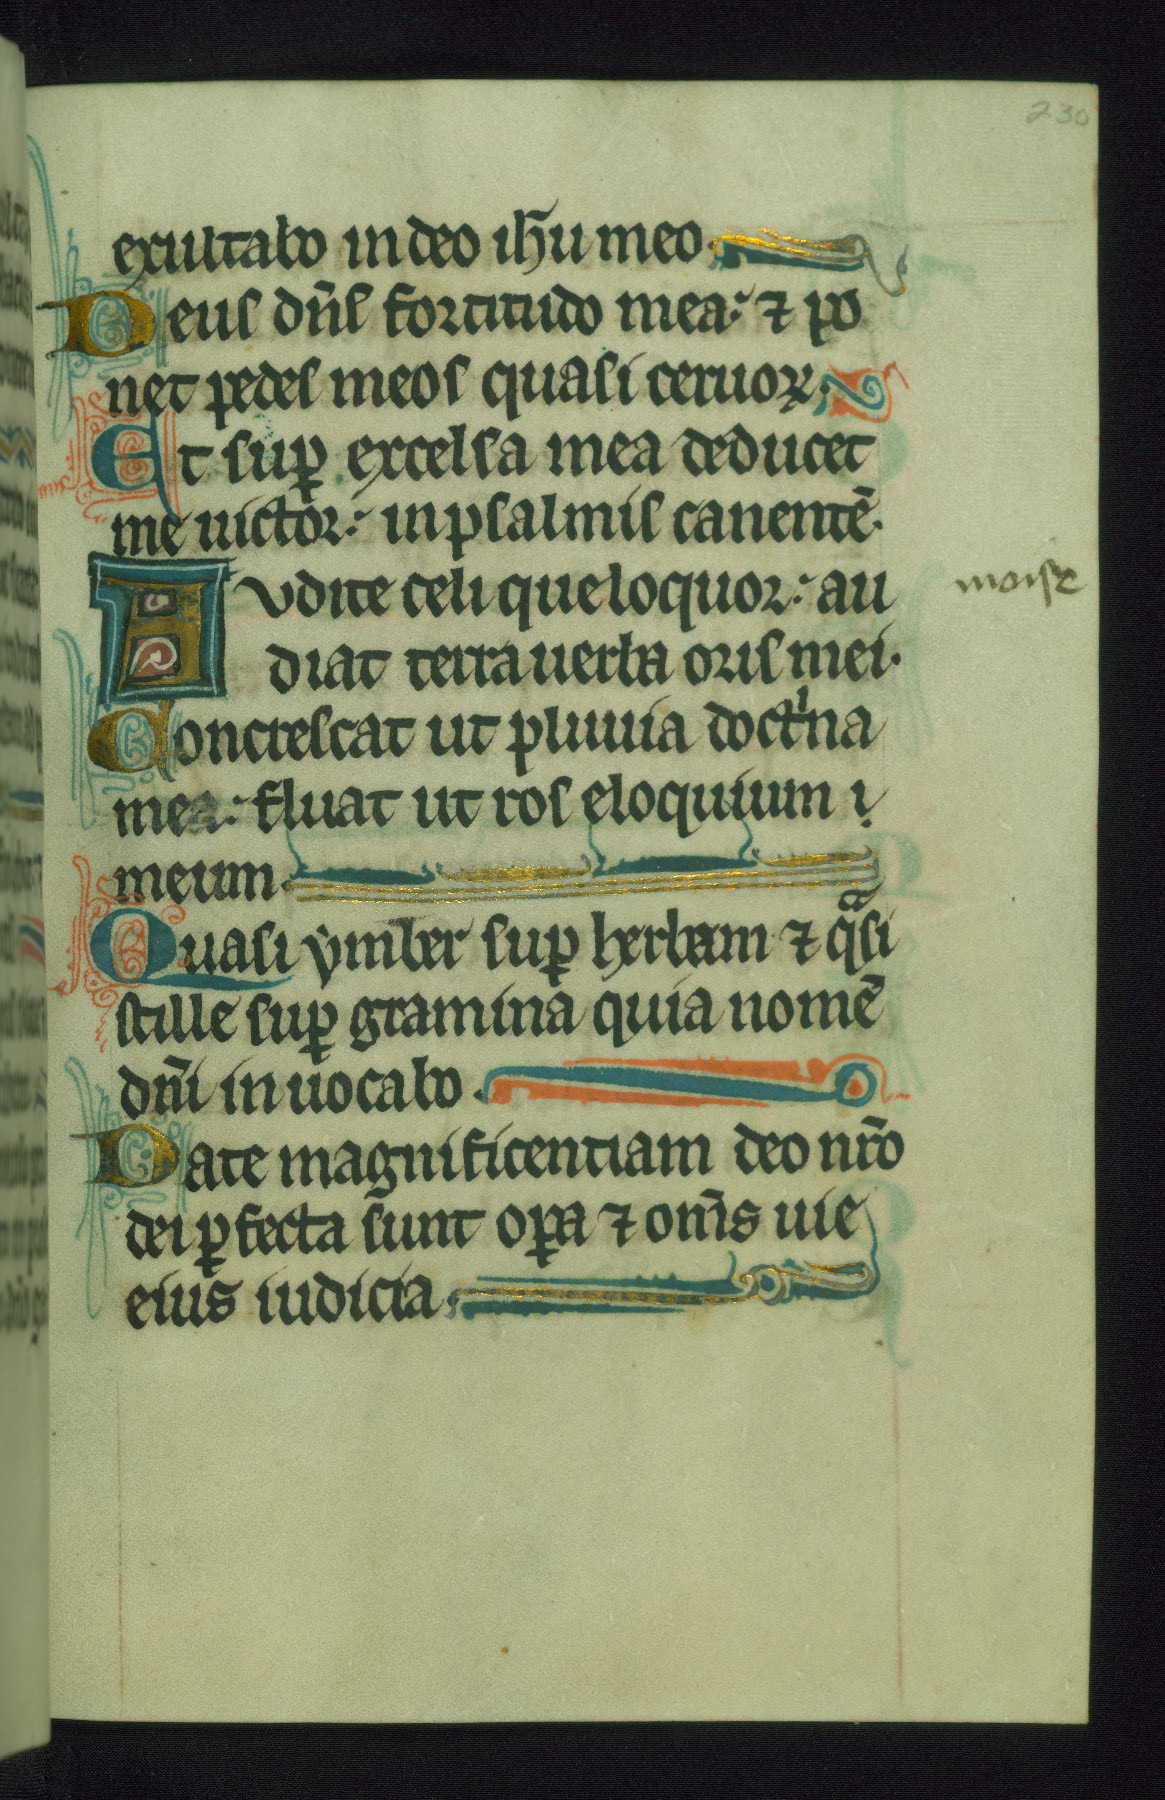 230
exultabo in deo ih̅u meo.
Deus dn̅s fortitudo mea: ⁊ po
net pedes meos quasi ceruoꝝ.
Et suꝑ excelsa mea deducet
me uictor: in psalmis canentē.
Audite celi que loquor: au
moise
diat terra uerba oris mei.
Concrescat ut pluuia doctͥna
mea: fluat ut ros eloquium
meum.
Quasi ymber suꝑ herbam ⁊ qͣsi
stille suꝑ gramina quia nomē
dn̅i inuocabo.
Date magnificentiam deo nr̅o
dei ꝑfecta sunt oꝑa ⁊ om̅s uie
eius iudicia.